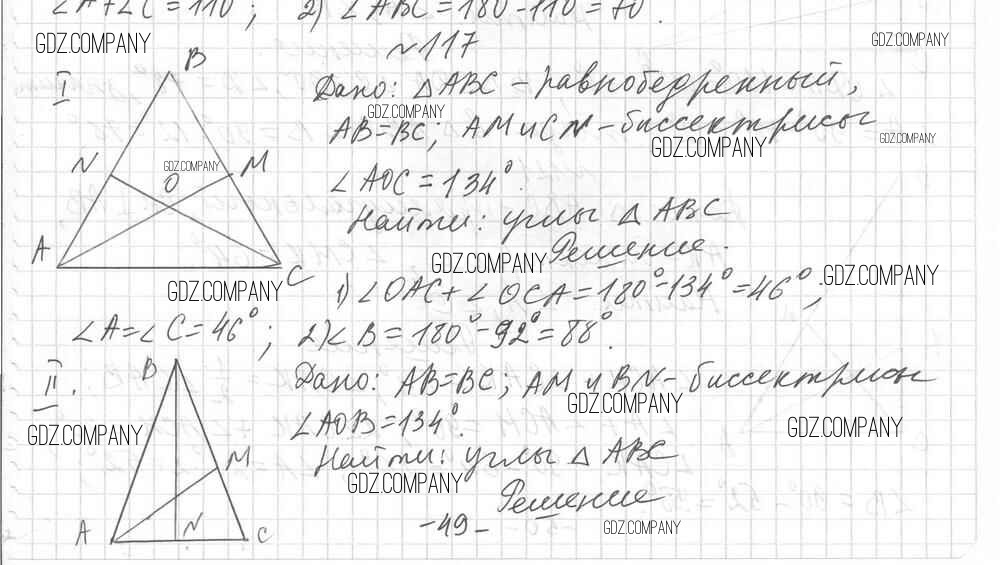 ∠A+∠C=110°; 2) ∠ABC=180-110=70°.
GDZ.COMPANY
№117
GDZ.COMPANY
I
B
Дано: △ABC - равнобедренный,
GDZ.COMPANY
AB=BC; AM и CN - биссектрисы
GDZ.COMPANY
GDZ.COMPANY
N
GDZ.COMPANY
O
M
∠AOC=134°.
Найти: углы △ABC
A
C
Решение.
GDZ.COMPANY
GDZ.COMPANY
GDZ.COMPANY
1) ∠OAC+∠OCA=180°-134°=46°;
∠A=∠C=46°; 2) ∠B=180°-92°=88°.
II.
B
Дано: AB=BC; AM и BN - биссектрисы
GDZ.COMPANY
∠AOB=134°.
GDZ.COMPANY
GDZ.COMPANY
Найти: углы △ABC
M
GDZ.COMPANY
Решение
A
N
C
-49-
GDZ.COMPANY